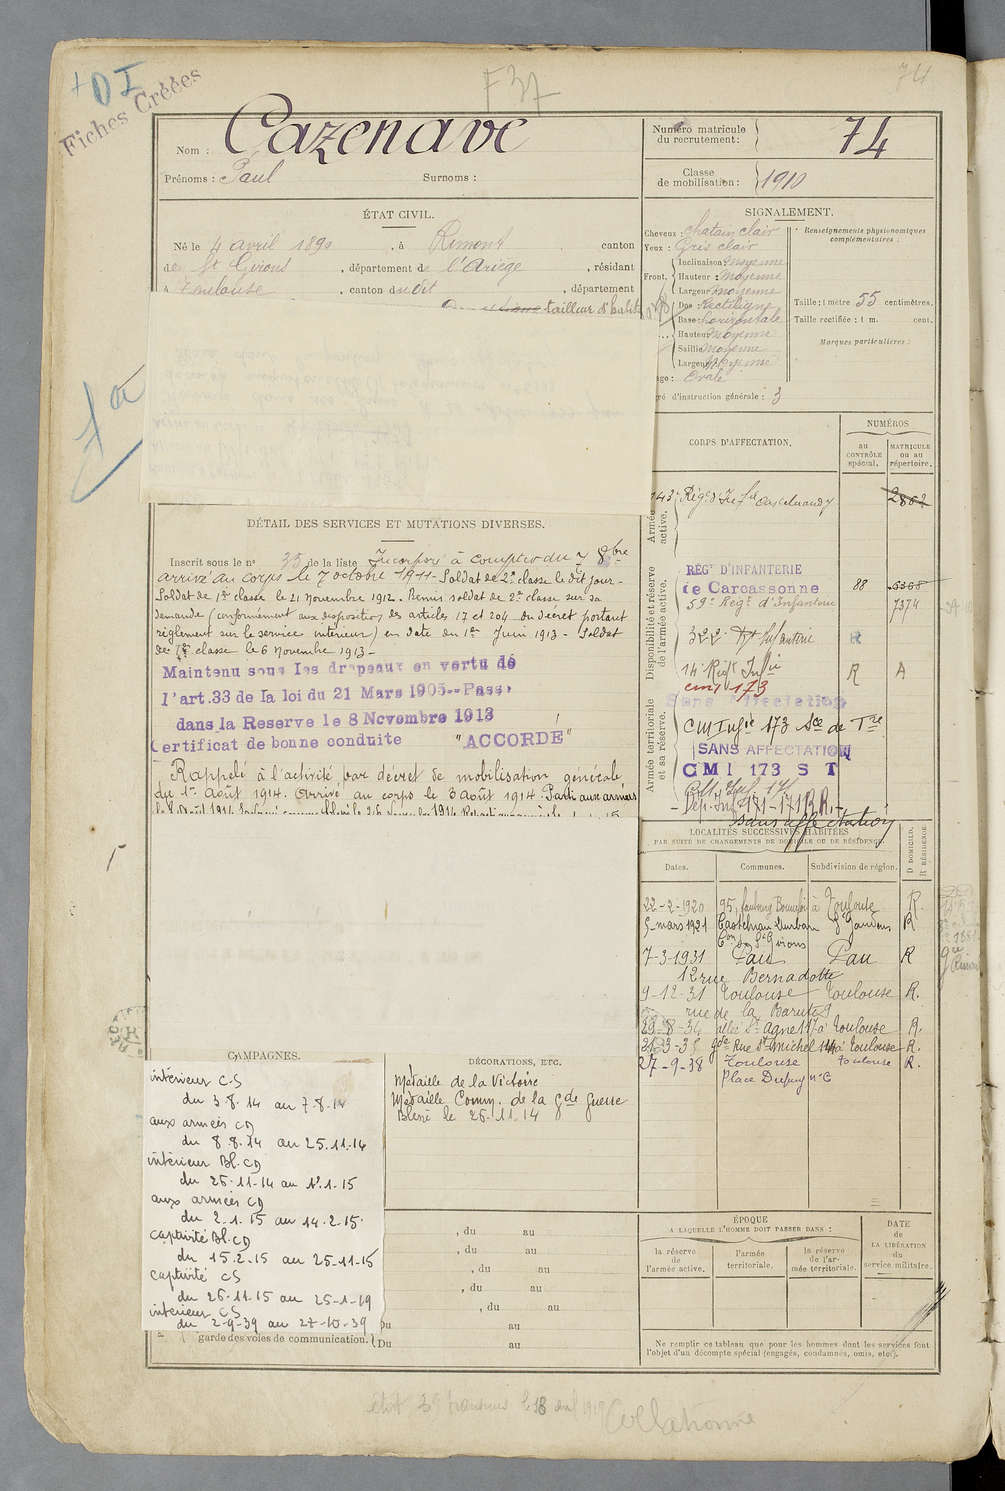 + OI
Fiches Créées
F37
74
Nom : Cazenave
Prénoms : Paul Surnoms :
Numéro matricule du recrutement : 74
Classe de mobilisation : 1910
ÉTAT CIVIL.
Né le 4 avril 1890, à Rimont, canton
de St Girons, département de l'Ariège, résidant
à Toulouse, canton du dit, département
tailleur d'habits
SIGNALEMENT.
Cheveux : chatain clair
Yeux : Gris clair
Front. Inclinaison : moyenne
Hauteur : moyenne
Largeur moyenne
Dos : Rectiligne
Base : horizontale
Hauteur moyenne
Saillie moyenne
Largeur moyenne
Ovale
gré d'instruction générale : 3
Renseignements physionomiques complémentaires :
Taille : 1 mètre 55 centimètres.
Taille rectifiée : 1 m. cent.
Marques particulières :
CORPS D'AFFECTATION.
NUMÉROS
au CONTRÔLE spécial.
MATRICULE ou au répertoire.
Armée active.
143e Régt d'Infie Castelnaudary 2802
Disponibilité et réserve de l'armée active.
REGT D'INFANTERIE
de Carcassonne 88 6308
59e Régt d'Infanterie 7374
322 Rgt Infanterie
14 Régt Infie R A
cmi 173
Armée territoriale et sa réserve.
Sans Affectation
CM Infie 173 Sce de Tre
SANS AFFECTATION
CMI 173 S T
Dép. Inf 171-171 B.R.
sans affectation
DÉTAIL DES SERVICES ET MUTATIONS DIVERSES.
Inscrit sous le no 35 de la liste Incorporé à compter du 7 8bre
arrivé au corps le 7 octobre 1911- Soldat de 2e classe le dit jour-
Soldat de 1re classe le 21 novembre 1912. Remis soldat de 2e classe sur sa
demande (conformément aux disposition des articles 17 et 204 du décret portant
règlement sur le service intérieur) en date du 1er Juin 1913- Soldat
de 1re classe le 6 novembre 1913-
Maintenu sous les drapeaux en vertu de
l'art.33 de la loi du 21 Mars 1905--Passé
dans la Reserve le 8 Novembre 1913
Certificat de bonne conduite "ACCORDÉ"
Rappelé à l'activité par décret de mobilisation générale
du 1er Août 1914. Arrivé au corps le 3 août 1914. Parti aux armées
LOCALITÉS SUCCESSIVES HABITÉES
PAR SUITE DE CHANGEMENTS DE DOMICILE OU DE RÉSIDENCE.
Dates. Communes. Subdivision de région. D DOMICILE. R RÉSIDENCE
22-2-1920 95, faubourg Bonnefoi à Toulouse R.
5 mars 1921 Castelnau Durban St Gaudens R
Con de St Girons
7-3-1931 Pau Pau R
12 rue Bernadotte
9-12-31 Toulouse Toulouse R.
rue de la
29-8-34 allée St Agne 117 à Toulouse R.
31-3-35 gde Rue St Michel à Toulouse R.
27-9-38 Toulouse Toulouse R.
Place Dupuy no 6
CAMPAGNES.
intérieur CS
du 3.8.14 au 7.8.14
aux armées CD
du 8.8.14 au 25.11.14
intérieur Bl.CD
du 26.11.14 au 1.1.15
aux armées CD
du 2.1.15 au 14.2.15.
captivité Bl.CD
du 15.2.15 au 25-11-15
captivité CS
du 26.11.15 au 25-1-19
interieur CS
du 2-9-39 au 27-10-39
DÉCORATIONS, ETC.
Médaille de la Victoire
Médaille Comm. de la Gde Guerre
Blessé le 26.11.14
, du au
, du au
, du au
, du au
, du au
Du au
garde des voies de communication. Du au
ÉPOQUE
A LAQUELLE L'HOMME DOIT PASSER DANS :
la réserve de l'armée active.
l'armée territoriale.
la réserve de l'armée territoriale.
DATE de LA LIBÉRATION du service militaire.
Ne remplir ce tableau que pour les hommes dont les services font
l'objet d'un décompte spécial (engagés, condamnés, omis, etc.).